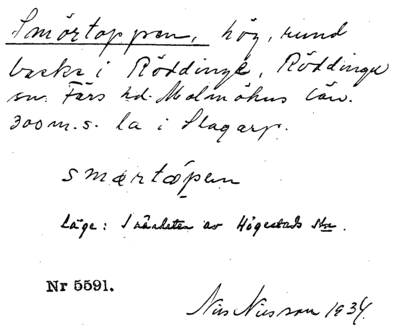 Smörtoppen, hög, rund
backe i Röddinge, Röddinge
sn. Färs hd. Malmöhus län.
300 m. s. la i Slagarp.
smærtɶpen
Läge: I närheten av Högestads
Nr 5591.
Nils Nilsson 1934.